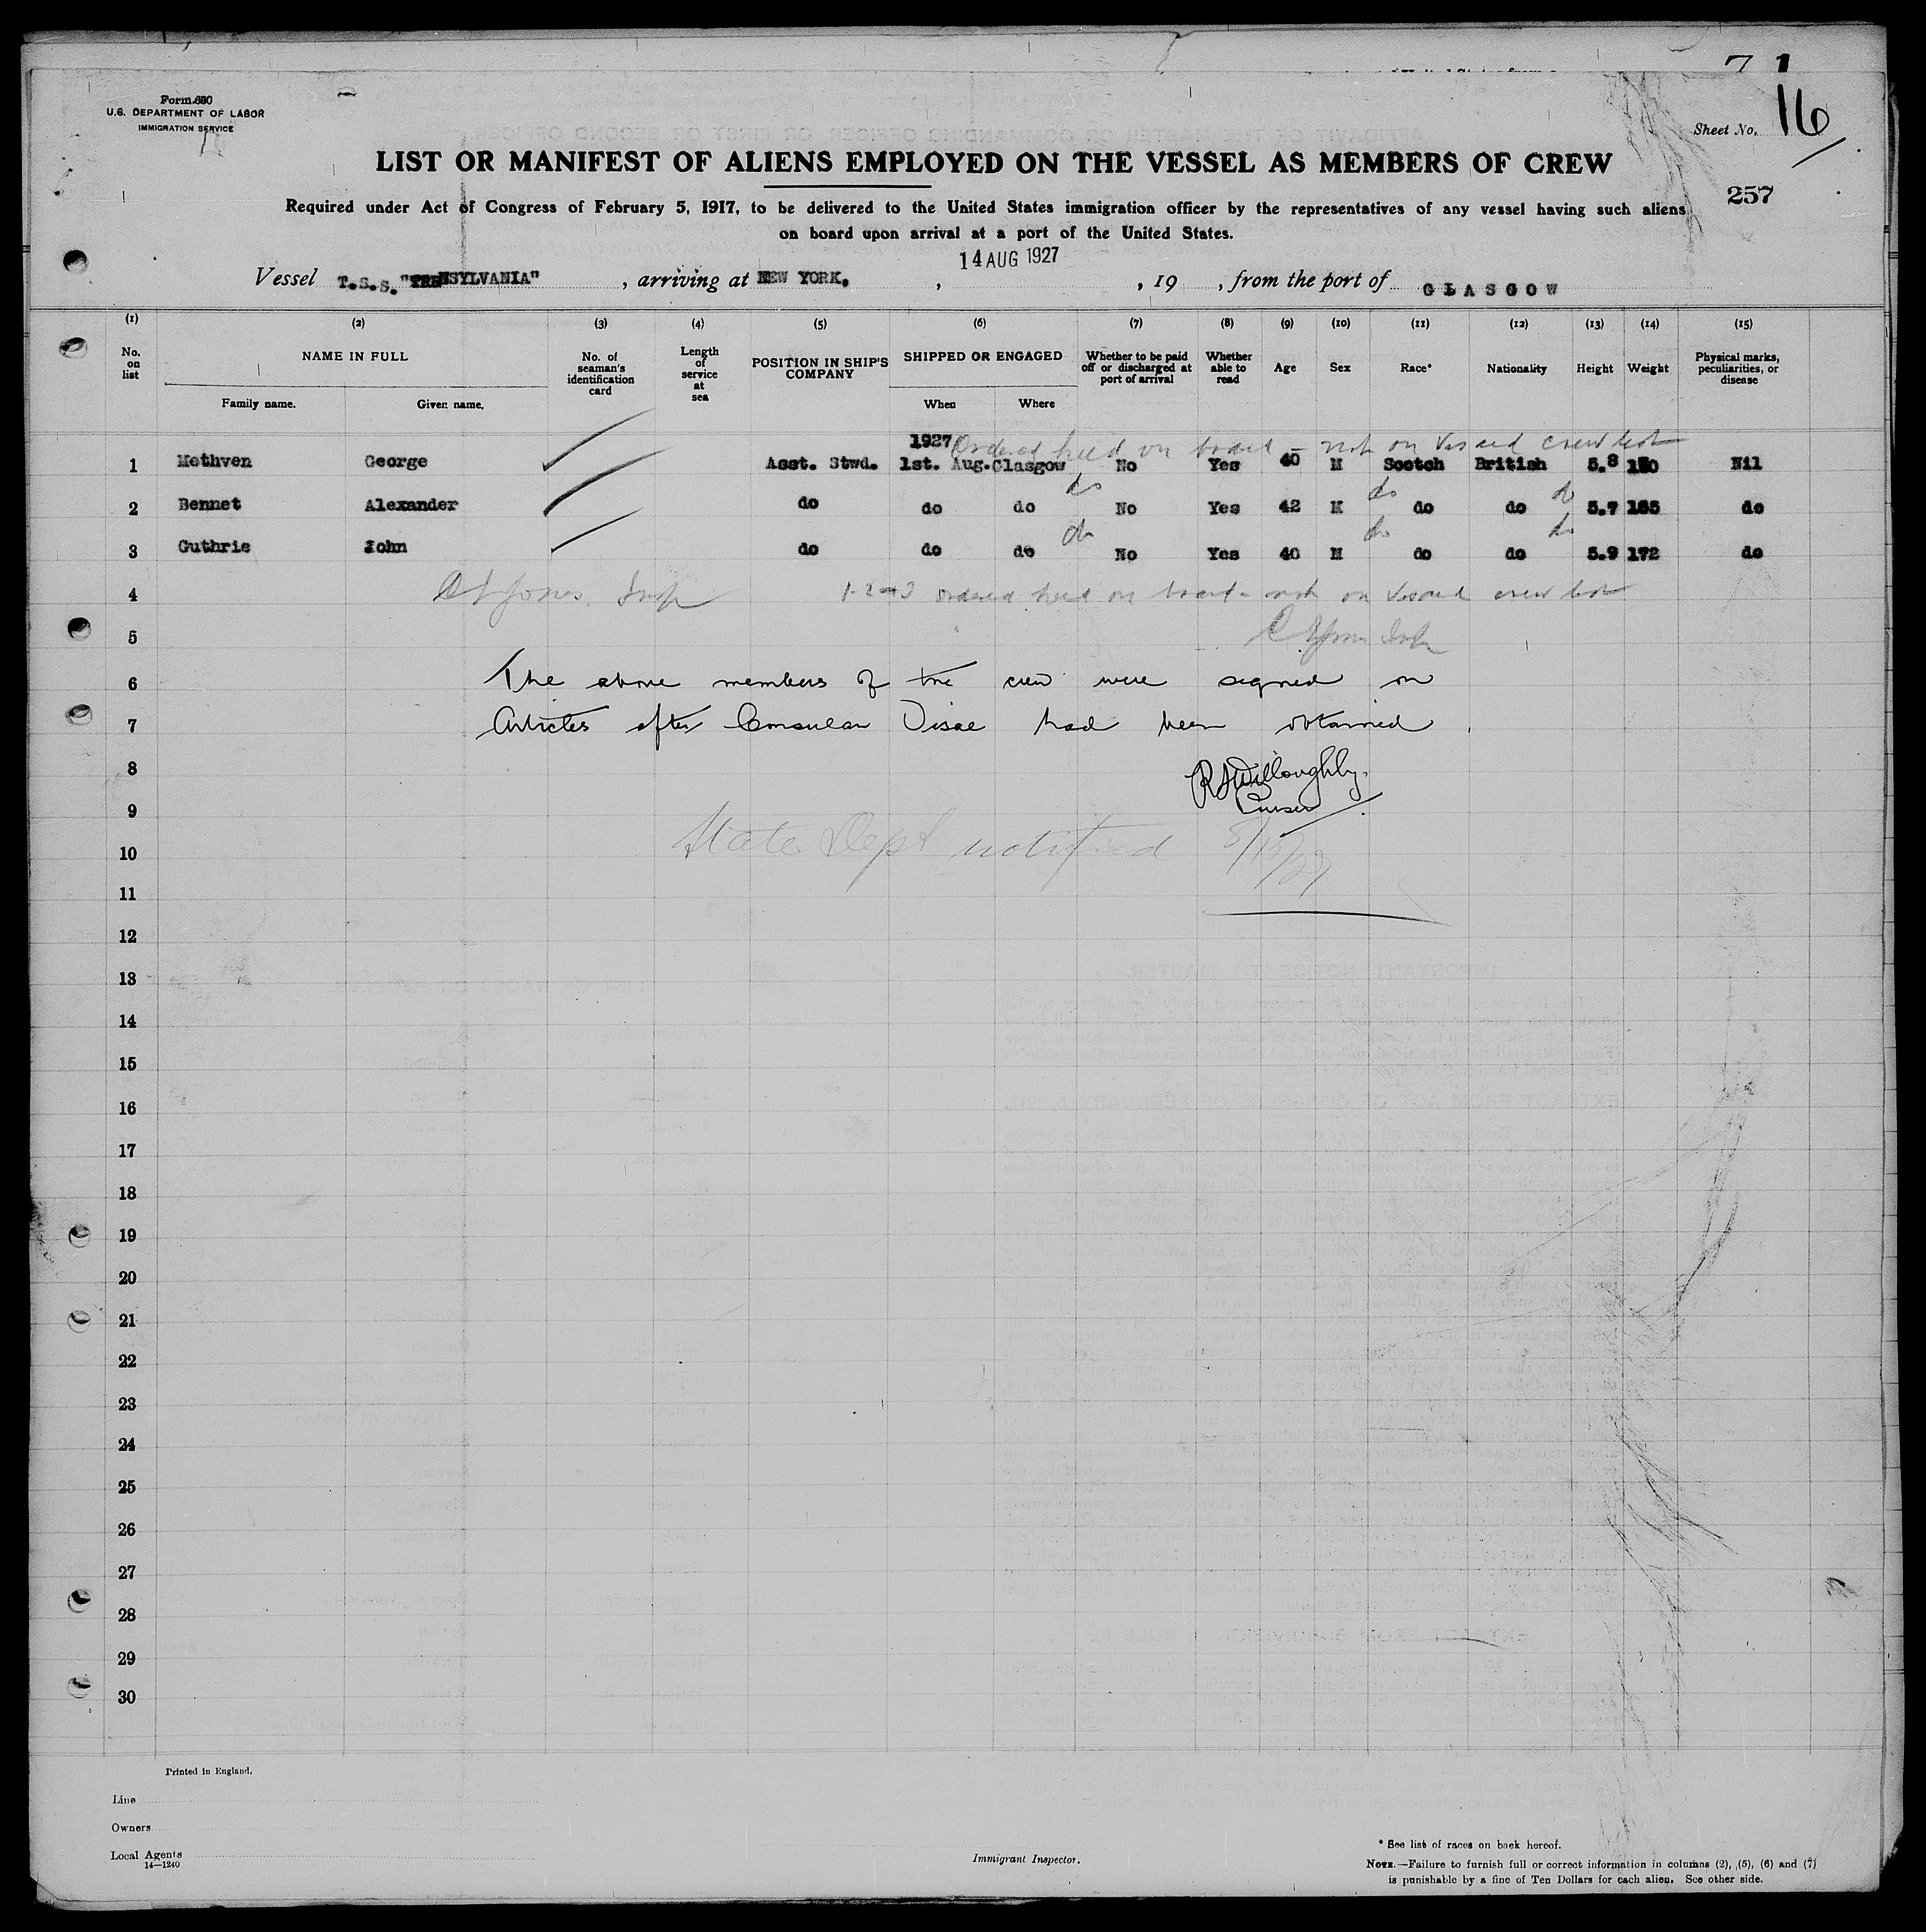 7 1
Form 680
U.S. DEPARTMENT OF LABOR
IMMIGRATION SERVICE
Sheet No. 16
LIST OR MANIFEST OF ALIENS EMPLOYED ON THE VESSEL AS MEMBERS OF CREW
257
Required under Act of Congress of February 5, 1917, to be delivered to the United States immigration officer by the representatives of any vessel having such aliens
on board upon arrival at a port of the United States.
14 AUG 1927
Vessel T.S.S. "NSYLVANIA" , arriving at NEW YORK, , , 19 , from the port of GLASGOW
(1) (2) (3) (4) (5) (6) (7) (8) (9) (10) (11) (12) (13) (14) (15)
No. on list NAME IN FULL No. of seaman's identification card Length of service at sea POSITION IN SHIP'S COMPANY SHIPPED OR ENGAGED Whether to be paid off or discharged at port of arrival Whether able to read Age Sex Race* Nationality Height Weight Physical marks, peculiarities, or disease
Family name. Given name. When Where
1927 Ordered held on board - not on Visaed crew list
1 Methven George Asst. Stwd. 1st. Aug. Glasgow No Yes 40 M Scotch British 5.8 Nil
do do do
2 Bennet Alexander do do do No Yes 42 M do do 5.7 165 do
do do do
3 Guthrie John do do do No Yes 40 M do do 5.9 172 do
4 Jones Insp 1-2-3 ordered held on board - not on Visaed crew list
5 Jones Insp
6 The above members of the crew were signed on
7 Articles after Consular Visae had been obtained.
8 R Willoughby.
9 Purser
10 State Dept notified 8/15/27
11
12
13
14
15
16
17
18
19
20
21
22
23
24
25
26
27
28
29
30
Printed in England.
Line
Owners
Local Agents
14—1240
Immigrant Inspector.
* See list of races on back hereof.
NOTE.—Failure to furnish full or correct information in columns (2), (5), (6) and (7)
is punishable by a fine of Ten Dollars for each alien. See other side.